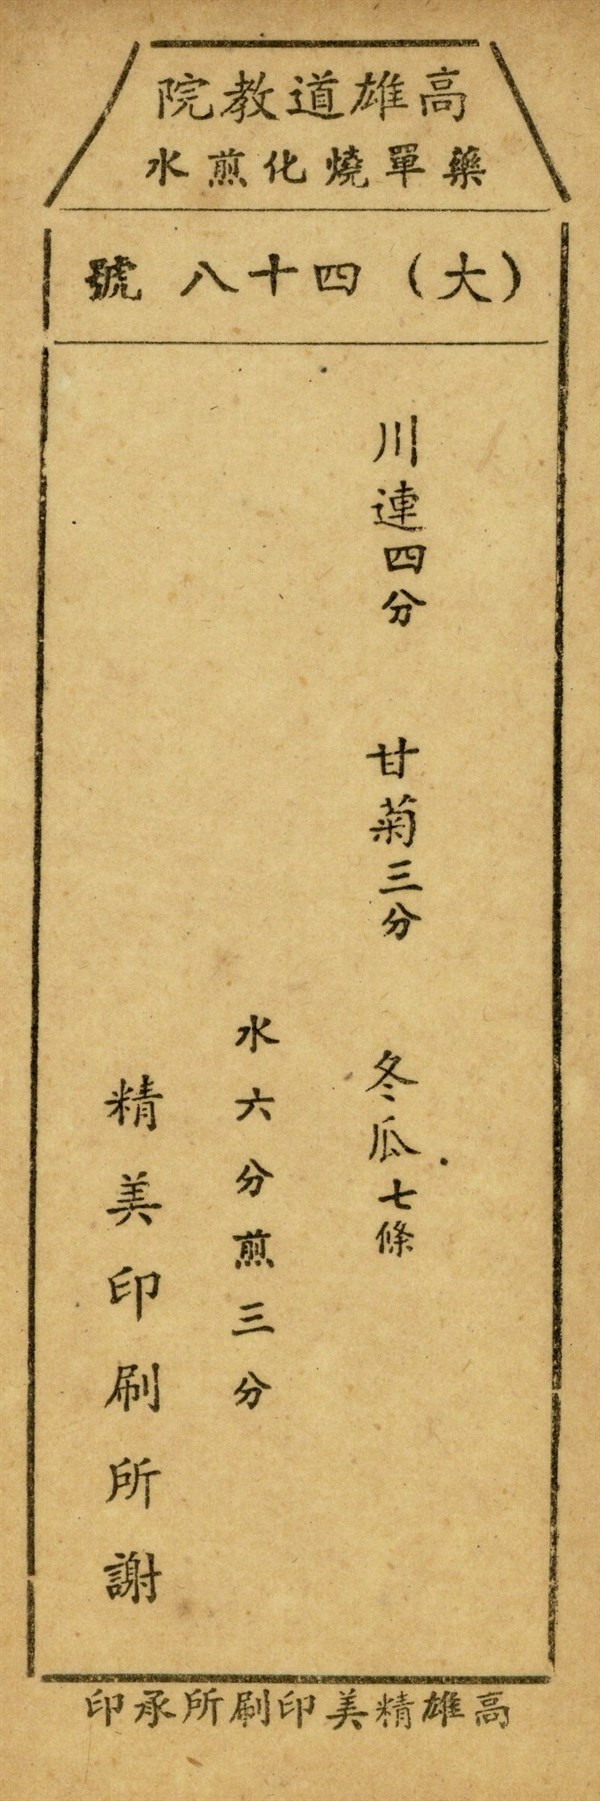 高雄道教院
藥單燒化煎水
（大）四十八號
川連四分　甘菊三分　冬瓜七條
水六分煎三分
精美印刷所謝
高雄精美印刷所承印